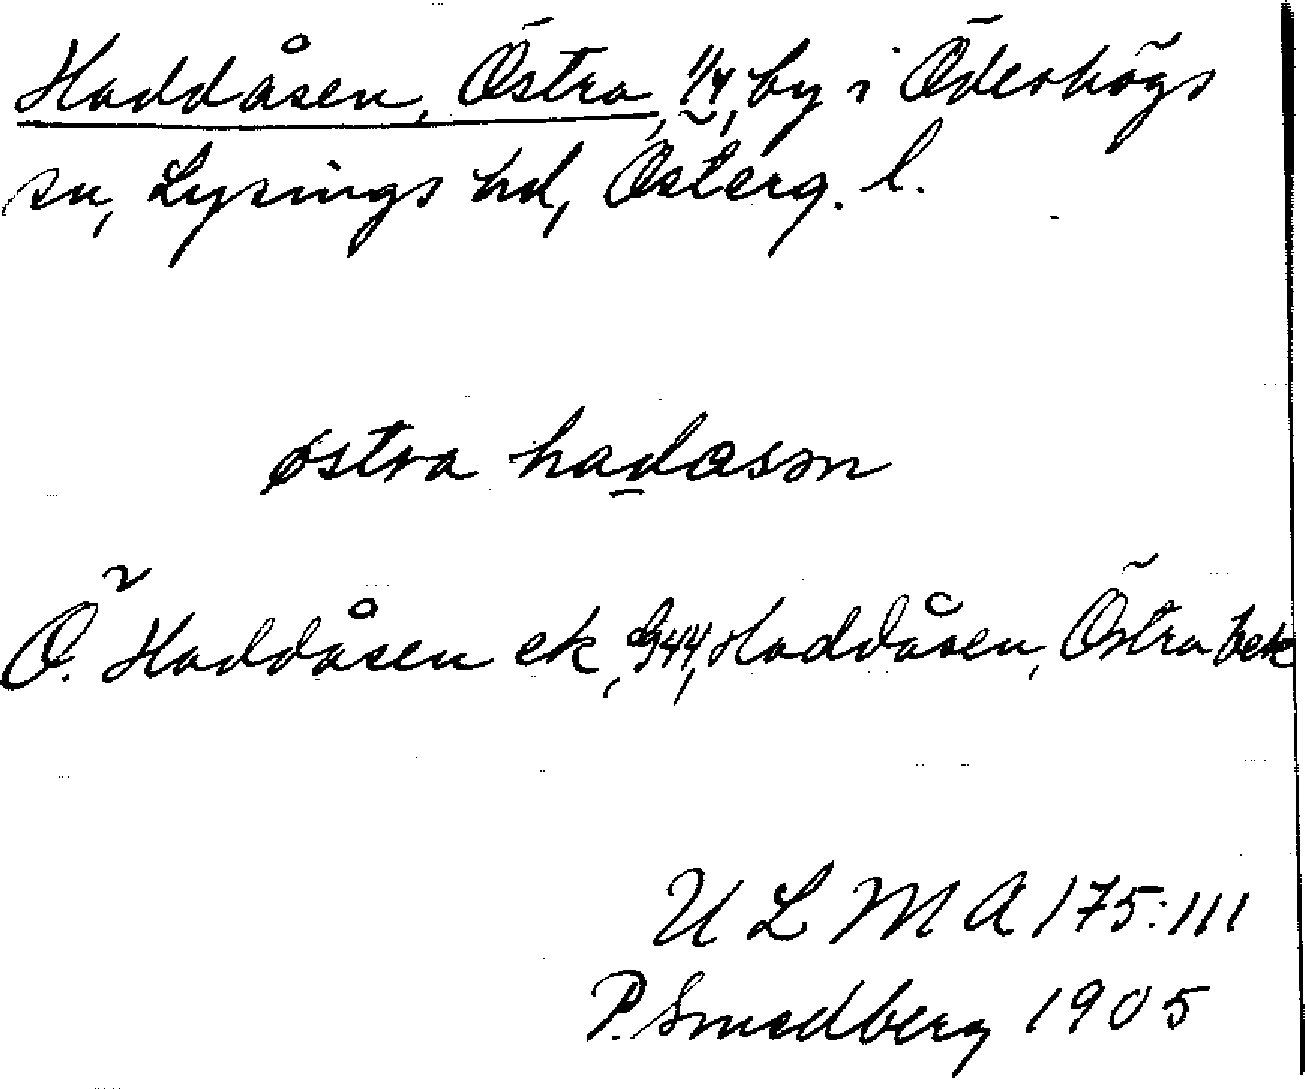 Haddåsen, Östra, 1/4, by i Ödeshögs
sn, Lysings hd, Österg. l.
østra hadasən
Ö. Haddåsen ek, G44, Haddåsen, Östra bek
ULMA 175:111
P. Smedberg 1905